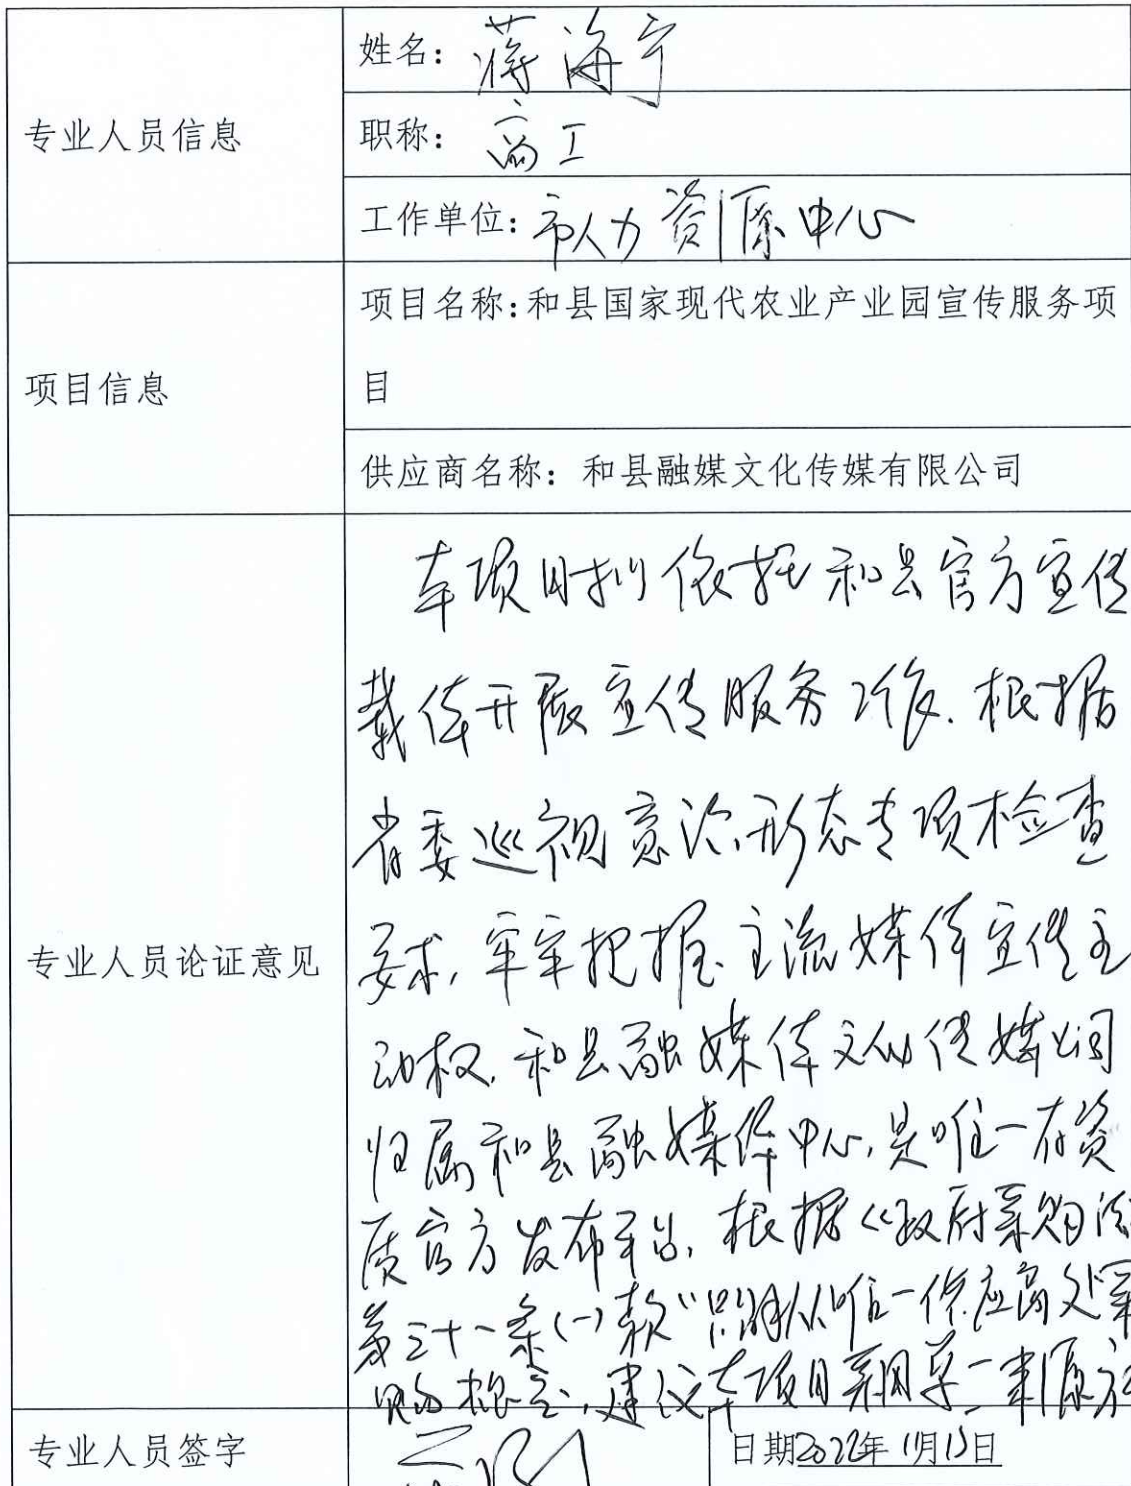 专业人员信息
姓名：蒋海宁
职称：高工
工作单位：市人力资源中心
项目信息
项目名称：和县国家现代农业产业园宣传服务项
目
供应商名称：和县融媒文化传媒有限公司
专业人员论证意见
本项目拟依托和县官方宣传
载体开展宣传服务工作.根据
省委巡视意识形态专项检查
要求,牢牢把握主流媒体宣传主
动权.和县融媒体文化传媒公司
归属和县融媒体中心,是唯一有资
质官方发布平台,根据《政府采购法
第三十一条(一)款"只能从唯一供应商处采
购规定,建议本项目采用单一来源方
专业人员签字
日期2022年11月15日